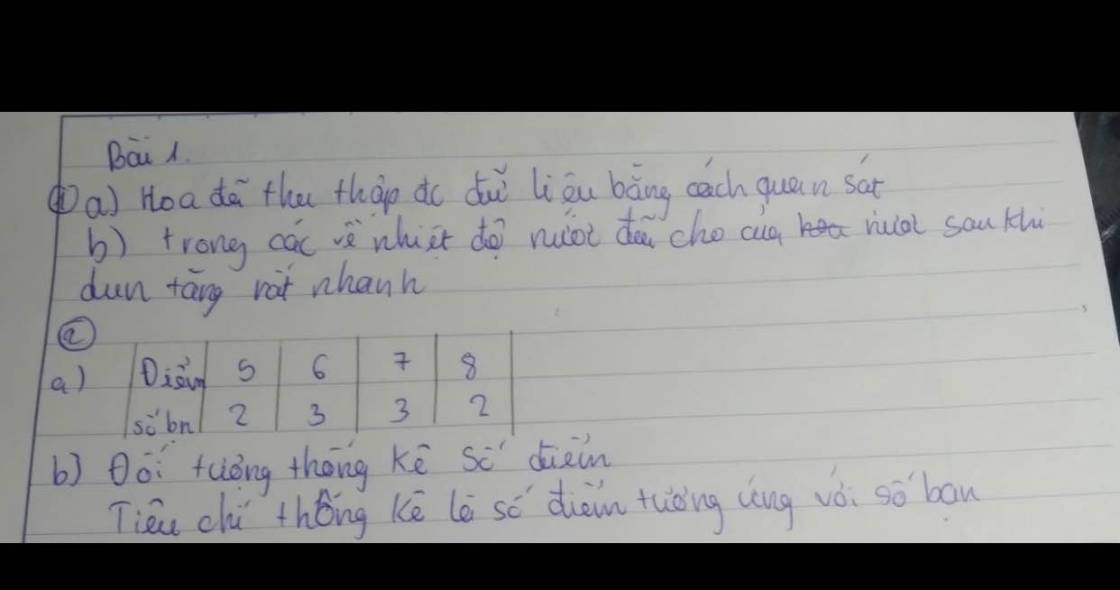 Bài 1.
① a) Hoa đã thu thập đc dữ liệu bằng cách quan sát
b) trong các về nhiệt độ nước đã cho của nước sau khi
đun tăng rất nhanh
②
a) Điểm 5 6 7 8
số bn 2 3 3 2
b) Đối tượng thống kê số điểm
Tiêu chí thống kê là số điểm tương ứng với số bạn